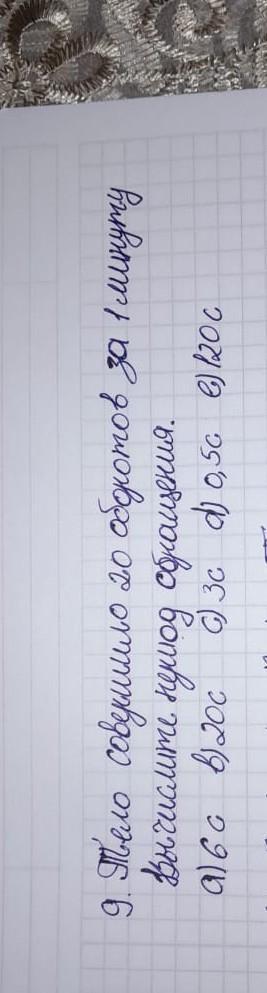 9. Тело совершило 20 оборотов за 1 минуту
Вычислите период обращения.
a) 6 c b) 20c c) 3c d) 0,5c e) 120c